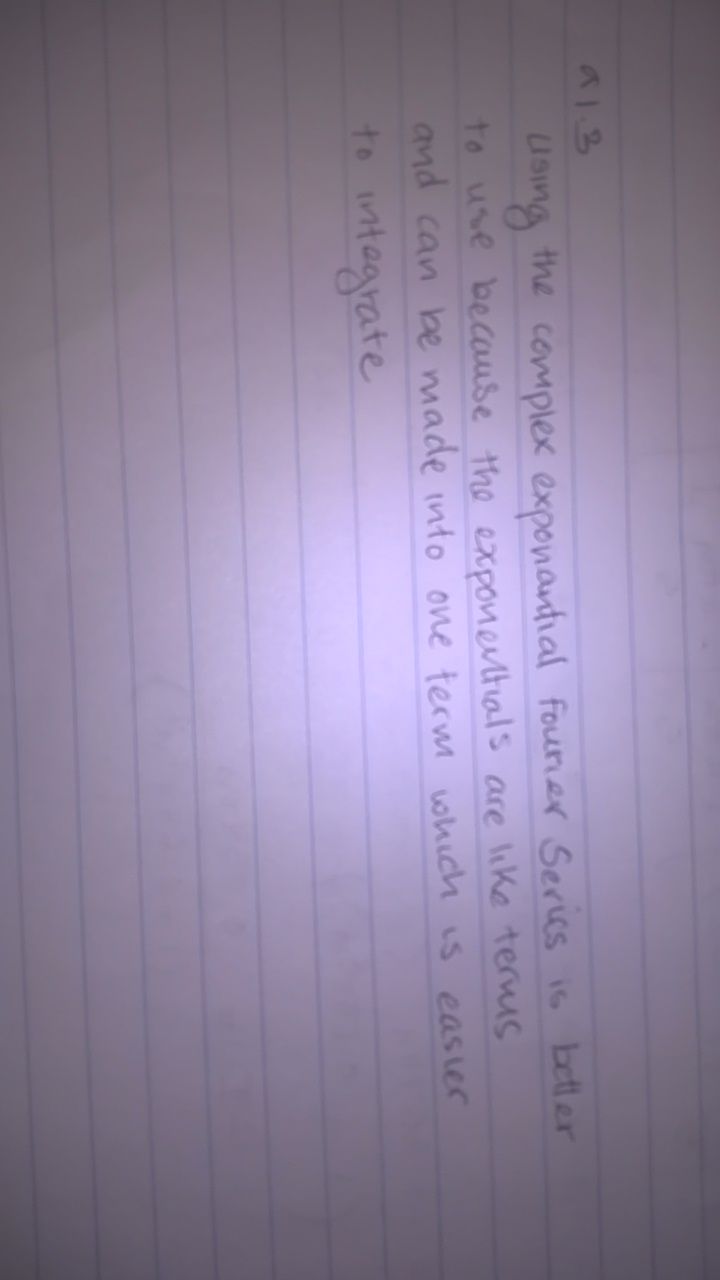 a1.3
Using the complex exponantial fourier Series is better
to use because the exponentials are like terms
and can be made into one term which is easier
to integrate